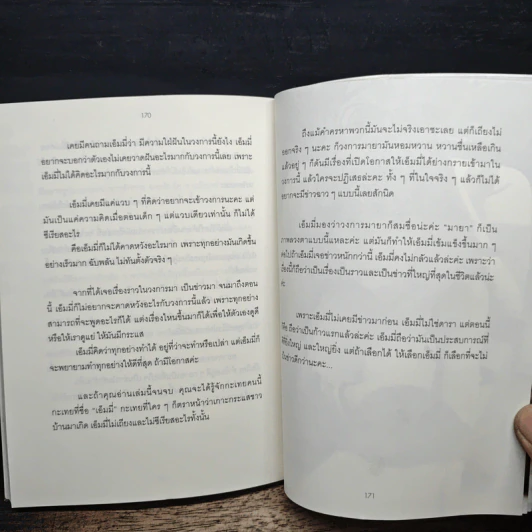 170
เคยมีคนถามเอ็มมี่ว่า มีความใฝ่ฝันในวงการนี้ยังไง เอ็มมี่
อยากจะบอกว่าตัวเองไม่เคยวาดฝันอะไรมากกับวงการนี้เลย เพราะ
เอ็มมี่ไม่ได้คิดอะไรมากกับวงการนี้
เอ็มมี่เคยมีแค่แวบ ๆ ที่คิดว่าอยากจะเข้าวงการนะคะ แต่
มันเป็นแค่ความคิดเมื่อตอนเด็ก ๆ แต่แวบเดียวเท่านั้น ก็ไม่ได้
ซีเรียสอะไร
คือเอ็มมี่ก็ไม่ได้คาดหวังอะไรมาก เพราะทุกอย่างมันเกิดขึ้น
อย่างเร็วมาก ฉับพลัน ไม่ทันตั้งตัวจริง ๆ
จากที่ได้เจอเรื่องราวในวงการมา เป็นข่าวมา จนมาถึงตอน
นี้ เอ็มมี่ก็ไม่อยากจะคาดหวังอะไรกับวงการนี้แล้ว เพราะทุกอย่าง
สามารถที่จะพูดอะไรก็ได้ แต่งเรื่องไหนขึ้นมาก็ได้เพื่อให้ตัวเองดูดี
หรือให้เขาดูแย่ ให้มันมีกระแส
เอ็มมี่คิดว่าทุกอย่างทำได้ อยู่ที่ว่าจะทำหรือเปล่า แต่เอ็มมี่
ก็จะพยายามทำทุกอย่างให้ดีที่สุด ถ้ามีโอกาสค่ะ
และถ้าคุณอ่านเล่มนี้จนจบ คุณจะได้รู้จักกะเทยคนนี้
กะเทยที่ชื่อ "เอ็มมี่" กะเทยที่ใคร ๆ ก็ตราหน้าว่าเกาะกระแสชาว
บ้านมาเกิด เอ็มมี่ไม่เถียงและไม่ซีเรียสอะไรทั้งนั้น
ถึงแม้คำครหาพวกนี้มันจะไม่จริงเอาซะเลย แต่ก็เถียงไม่
ออกจริง ๆ นะคะ ก็วงการมายามันหอมหวาน หวานชื่นเหลือเกิน
แล้วอยู่ ๆ ก็ดันมีเรื่องที่เปิดโอกาสให้เอ็มมี่ได้ย่างกรายเข้ามาใน
วงการนี้ แล้วใครจะปฏิเสธล่ะคะ ทั้ง ๆ ที่ในใจจริง ๆ แล้วก็ไม่ได้
อยากจะมีข่าวฉาว ๆ แบบนี้เลยสักนิด
เอ็มมี่มองว่าวงการมายาก็สมชื่อน่ะค่ะ "มายา" ก็เป็น
ภาพลวงตาแบบนี้แหละค่ะ แต่มันก็ทำให้เอ็มมี่เข้มแข็งขึ้นมาก ๆ
ต่อไปถ้าเอ็มมี่เจอข่าวหนักกว่านี้ เอ็มมี่คงไม่กลัวแล้วล่ะค่ะ เพราะว่า
เรื่องนี้ก็ถือว่าเป็นเรื่องเป็นราวและเป็นข่าวที่ใหญ่ที่สุดในชีวิตแล้วน่ะ
ค่ะ
เพราะเอ็มมี่ไม่เคยมีข่าวมาก่อน เอ็มมี่ไม่ใช่ดารา แต่ตอนนี้
ถือว่าเป็นก้าวแรกแล้วล่ะค่ะ เอ็มมี่ถือว่ามันเป็นประสบการณ์ที่
ยิ่งใหญ่ และใหญ่ยิ่ง แต่ถ้าเลือกได้ ให้เลือกเอ็มมี่ ก็เลือกที่จะไม่
ดีกว่านะคะ...
171